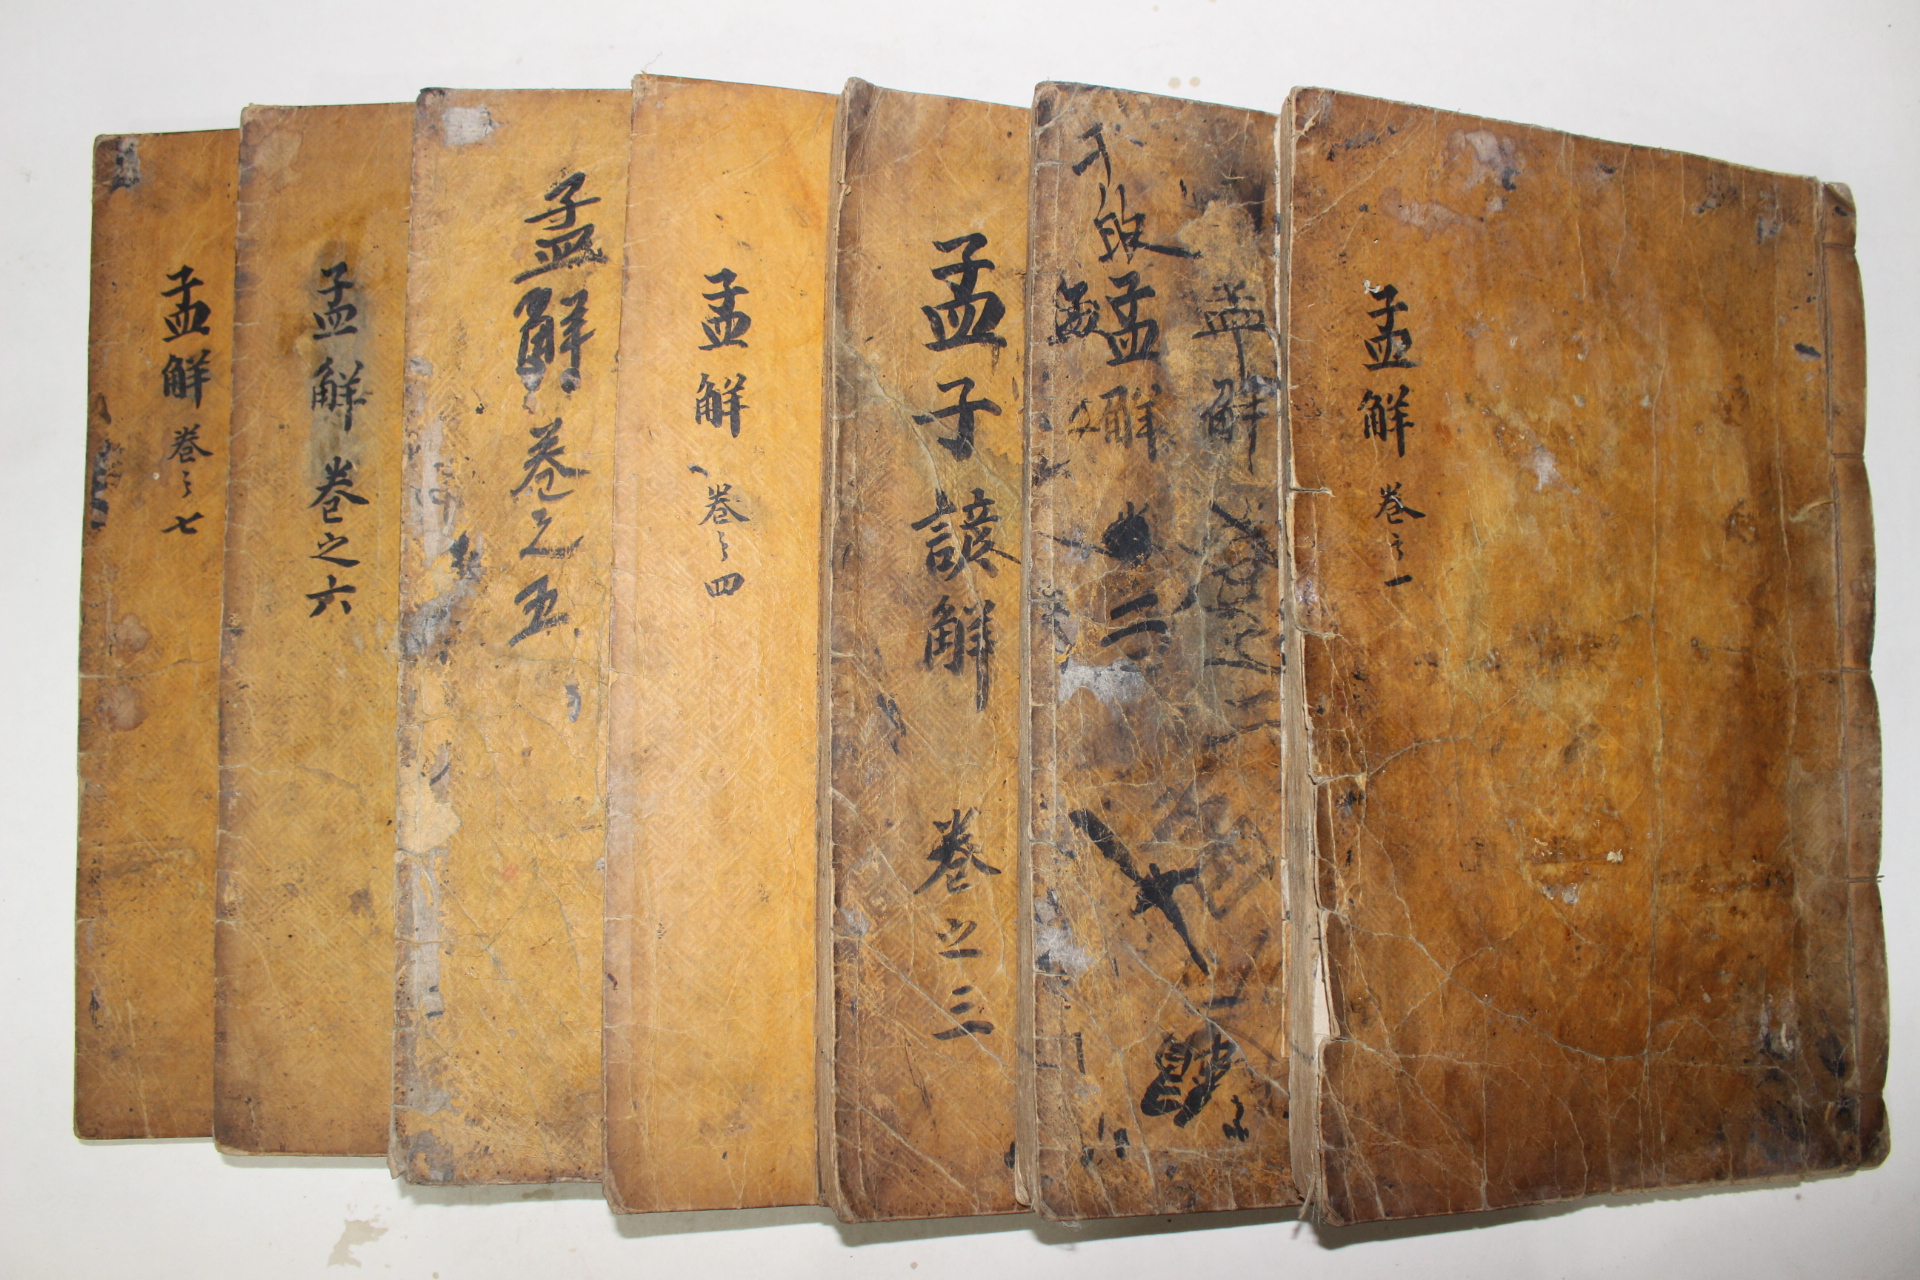 孟解 卷之一
孟解 卷之二
孟解 二
孟子諺解 卷之三
孟解 卷之四
孟解 卷之五
孟解 卷之六
孟解 卷之七